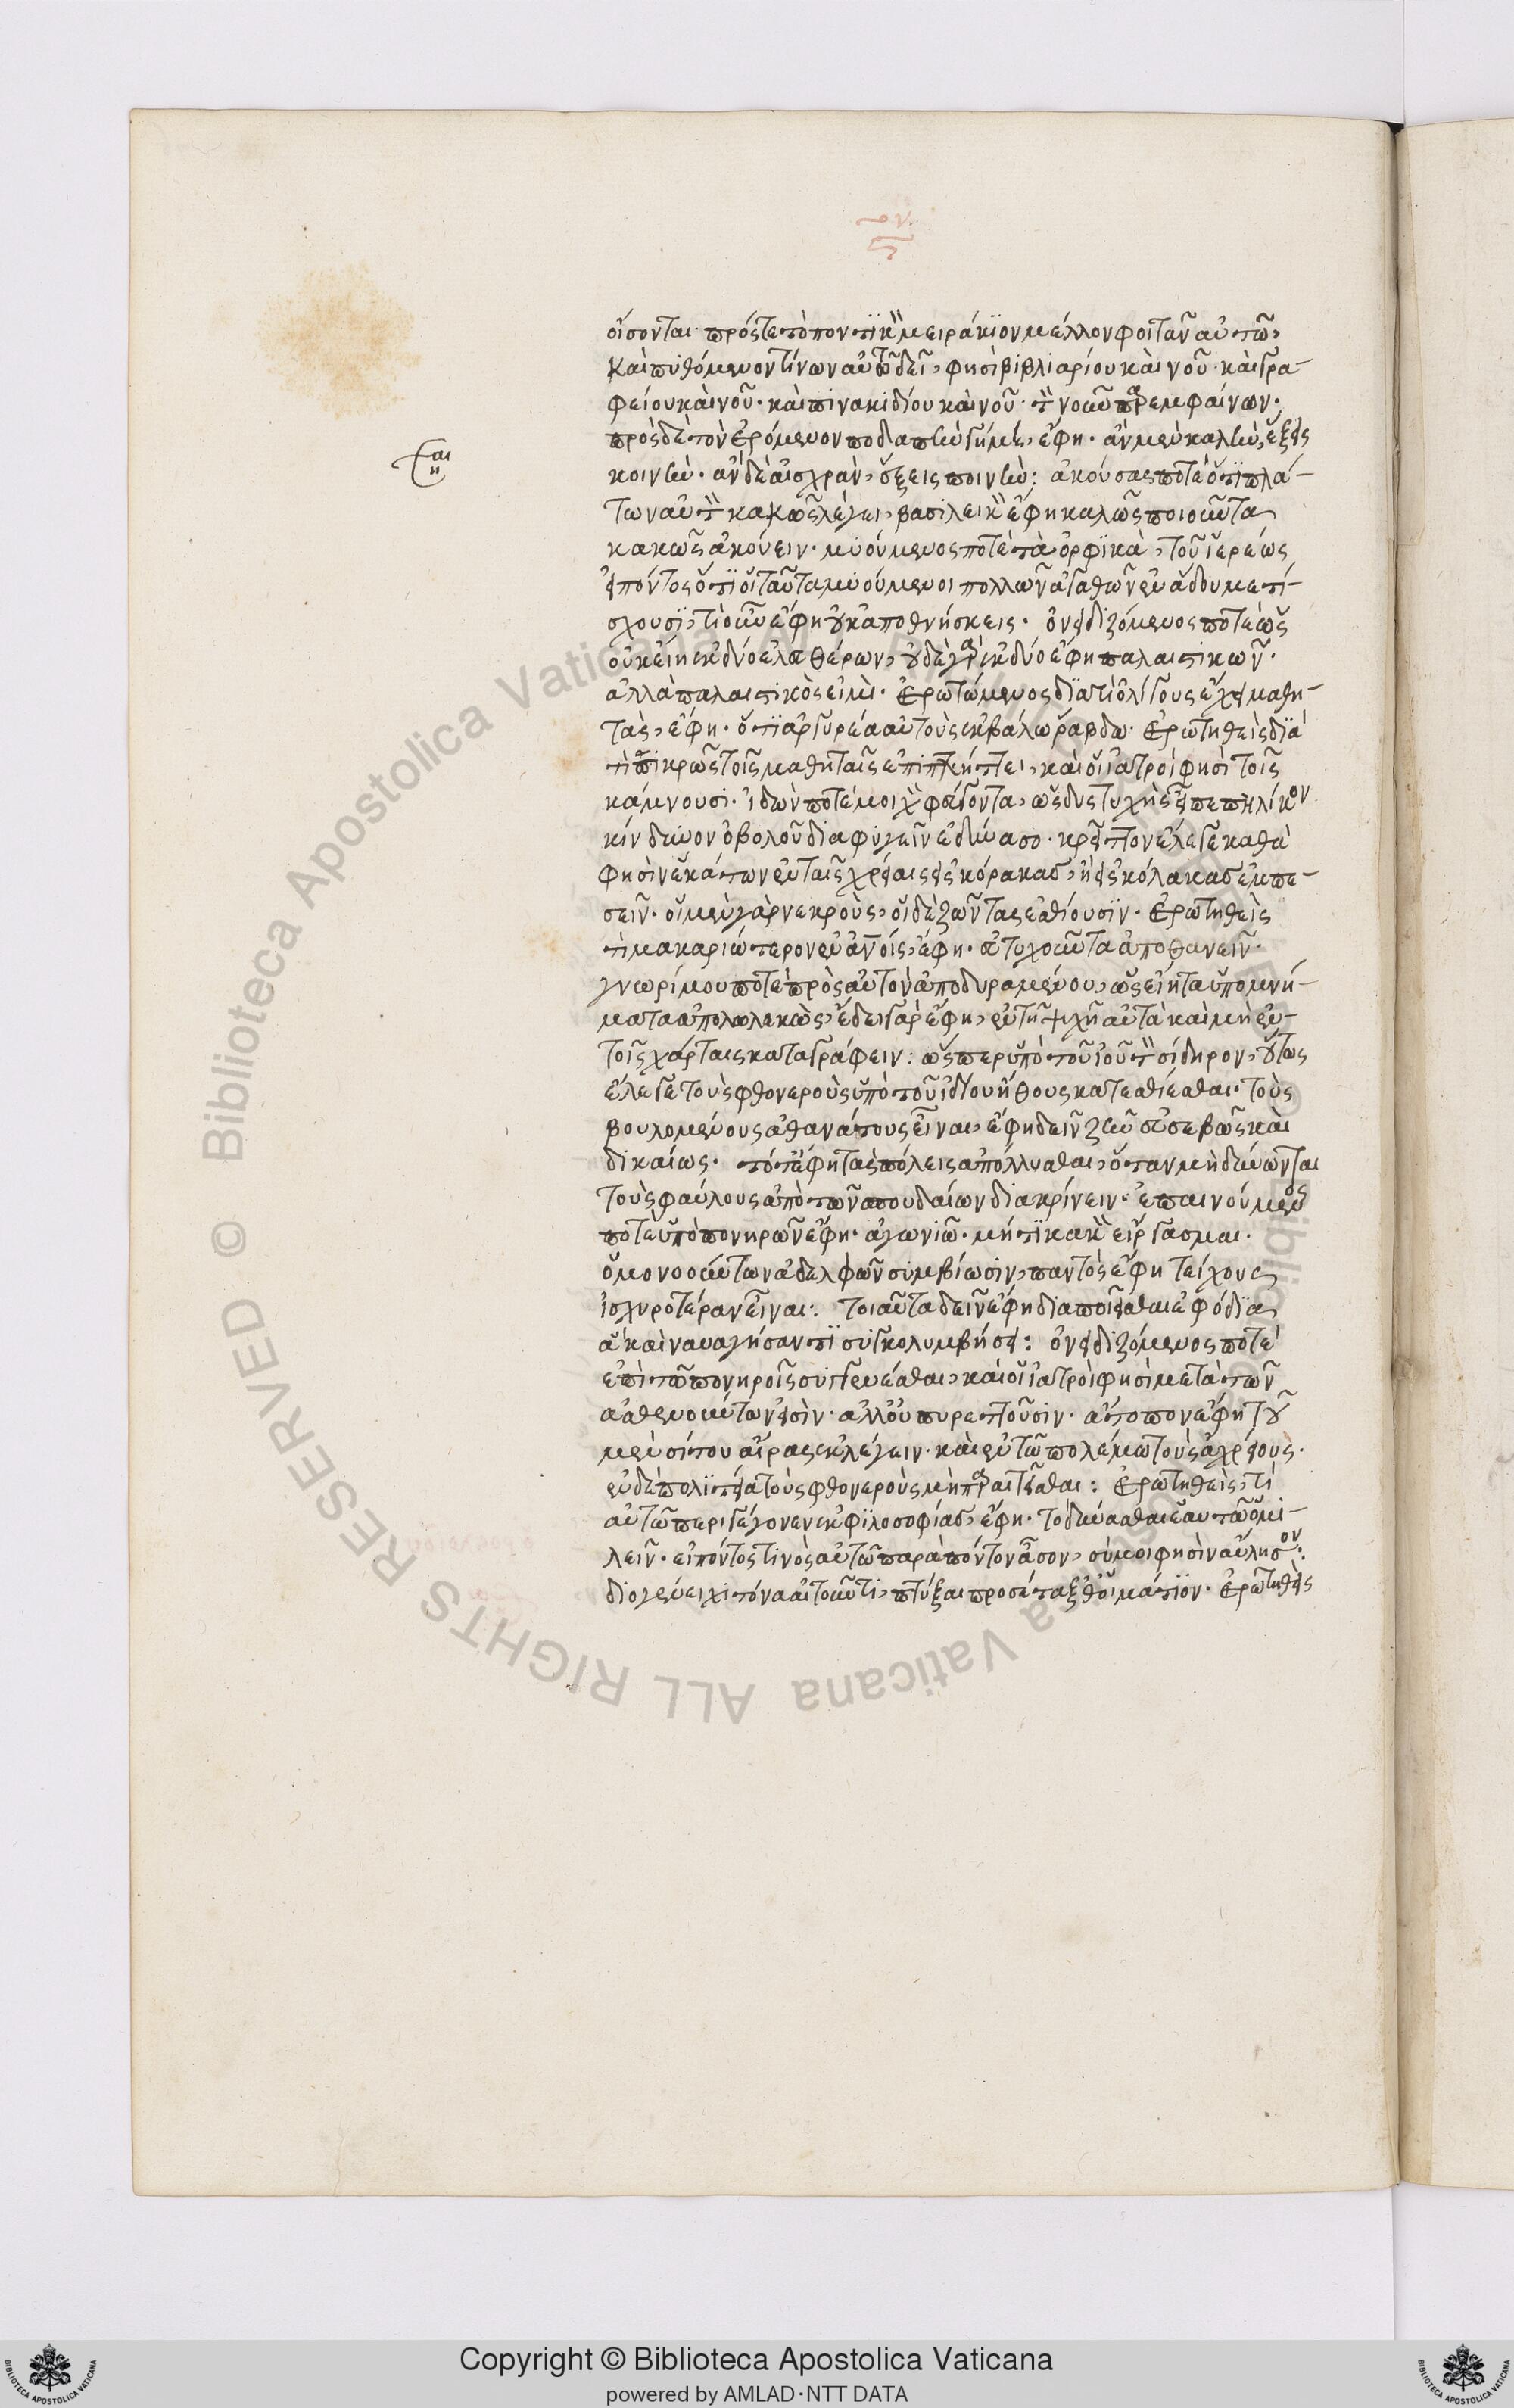 οἴσονται· πρός τε τὸ ποντικὸν μειράκιον μέλλον φοιτᾶν αὐτῶ,
καὶ πυθόμενον τίνων αὐτῶ δεῖ, φησὶ βιβλιαρίου καὶ νοῦ· καὶ γρα-
φείου καὶ νοῦ· καὶ πινακιδίου καὶ νοῦ· τὸν νοῦν παρεμφαίνων·
πρὸς δὲ τὸν ἐρόμενον ποδαπὴν γήμει, ἔφη· ἂν μὲν καλὴν, ἕξεις
κοινήν· ἂν δὲ αἰσχρὰν, ἕξεις ποινήν: ἀκούσας ποτὲ ὅτι πλά-
των αὐτὸν κακῶς λέγει, βασιλικὸν ἔφη καλῶς ποιοῦντα
κακῶς ἀκούειν· μυούμενος ποτὲ τὰ ὀρφικὰ, τοῦ ἱερέως
εἰπόντος ὅτι οἱ ταῦτα μυούμενοι πολλῶν ἀγαθῶν ἐν ἅδου μετί-
σχουσι, τί οὖν ἔφη οὐκ ἀποθνήσκεις· ὀνειδιζόμενος ποτὲ ὡς
οὐκ εἴη ἐκ δύο ἐλευθέρων, οὐδὲ γὰρ ἐκ δύο ἔφη παλαιστικῶν·
ἀλλὰ παλαιστικὸς εἰμί· ἐρωτώμενος διατί ὀλίγους ἔχει μαθη-
τὰς, ἔφη· ὅτι ἀργυρέα αὐτοὺς ἐκβάλω ῥάβδω· ἐρωτηθεὶς διά
τί πικρῶς τοῖς μαθηταῖς ἐπιπλήττει, καὶ οἱ ἰατροί φησὶ τοῖς
κάμνουσι· ἰδών ποτέ μοιχὸν φεύγοντα, ὦ δυστυχὴς εἶπε πηλίκον
κίνδυνον ὀβολοῦ διαφυγεῖν ἐδύνασο· κρεῖττον ἔλεγε καθά
φησὶν ἑκάτων ἐν ταῖς χρείαις εἰς κόρακας, ἢ εἰς κόλακας ἐμπε-
σεῖν· οἱ μὲν γὰρ νεκροὺς, οἱ δὲ ζῶντας ἐσθίουσιν· ἐρωτηθεὶς
τί μακαριώτερον ἐν ἀνοῖς, ἔφη· εὐτυχοῦντα ἀποθανεῖν·
γνωρίμου ποτὲ πρὸς αὐτὸν ἀποδυραμένου, ὡς εἴη τὰ ὑπομνή-
ματα ἀπολωλεκὼς, ἔδει γὰρ ἔφη, ἐν τῇ ψυχῇ αὐτὰ καὶ μὴ ἐν
τοῖς χάρταις καταγράφειν: ὥσπερ ὑπὸ τοῦ ἰοῦ τὸν σίδηρον, οὕτως
ἔλεγε τοὺς φθονεροὺς ὑπὸ τοῦ ἰδίου ἤθους κατεσθίεσθαι· τοὺς
βουλομένους ἀθανάτους εἶναι, ἔφη δεῖν ζῆν εὐσεβῶς καὶ
δικαίως· τότ' ἔφη τὰς πόλεις ἀπόλλυσθαι, ὅταν μὴ δύνωνται
τοὺς φαύλους ἀπὸ τῶν σπουδαίων διακρίνειν· ἐπαινούμενος
ποτὲ ὑπὸ πονηρῶν ἔφη· ἀγωνιῶ· μή τι κακὸν εἴργασμαι·
ὁμονοούντων ἀδελφῶν συμβίωσιν, παντὸς ἔφη τείχους
ἰσχυροτέραν εἶναι: τοιαῦτα δεῖν ἔφη διαποιεῖσθαι ἐφόδια
ἃ καὶ ναυαγήσαντι συγκολυμβήσει: ὀνειδιζόμενος ποτέ
ἐπὶ τῶ πονηροῖς συγγενέσθαι, καὶ οἱ ἰατροί φησὶ μετὰ τῶν
ἀσθενούντων εἰσὶν· ἀλλ' οὐ πυρέττουσιν· ἄτοπον ἔφη τοῦ
μὲν σίτου αἴρας ἐκλέγειν· καὶ ἐν τῶ πολέμω τοὺς ἀχρείους·
ἐν δὲ πολιτεία τοὺς φθονεροὺς μὴ παραιτεῖσθαι: ἐρωτηθεὶς, τί
αὐτῶ περιγέγονεν ἐκ φιλοσοφίας, ἔφη· τὸ δύνασθαι ἑαυτῶ ὁμι-
λεῖν· εἰπόντος τινὸς αὐτῶ παρὰ πότον ᾆσον, σύ μοι φησὶν αὔλησον:
διογένει χιτόνα αἰτοῦντι, πτύξαι προσέταξε θοἰμάτιον· ἐρωτηθεὶς